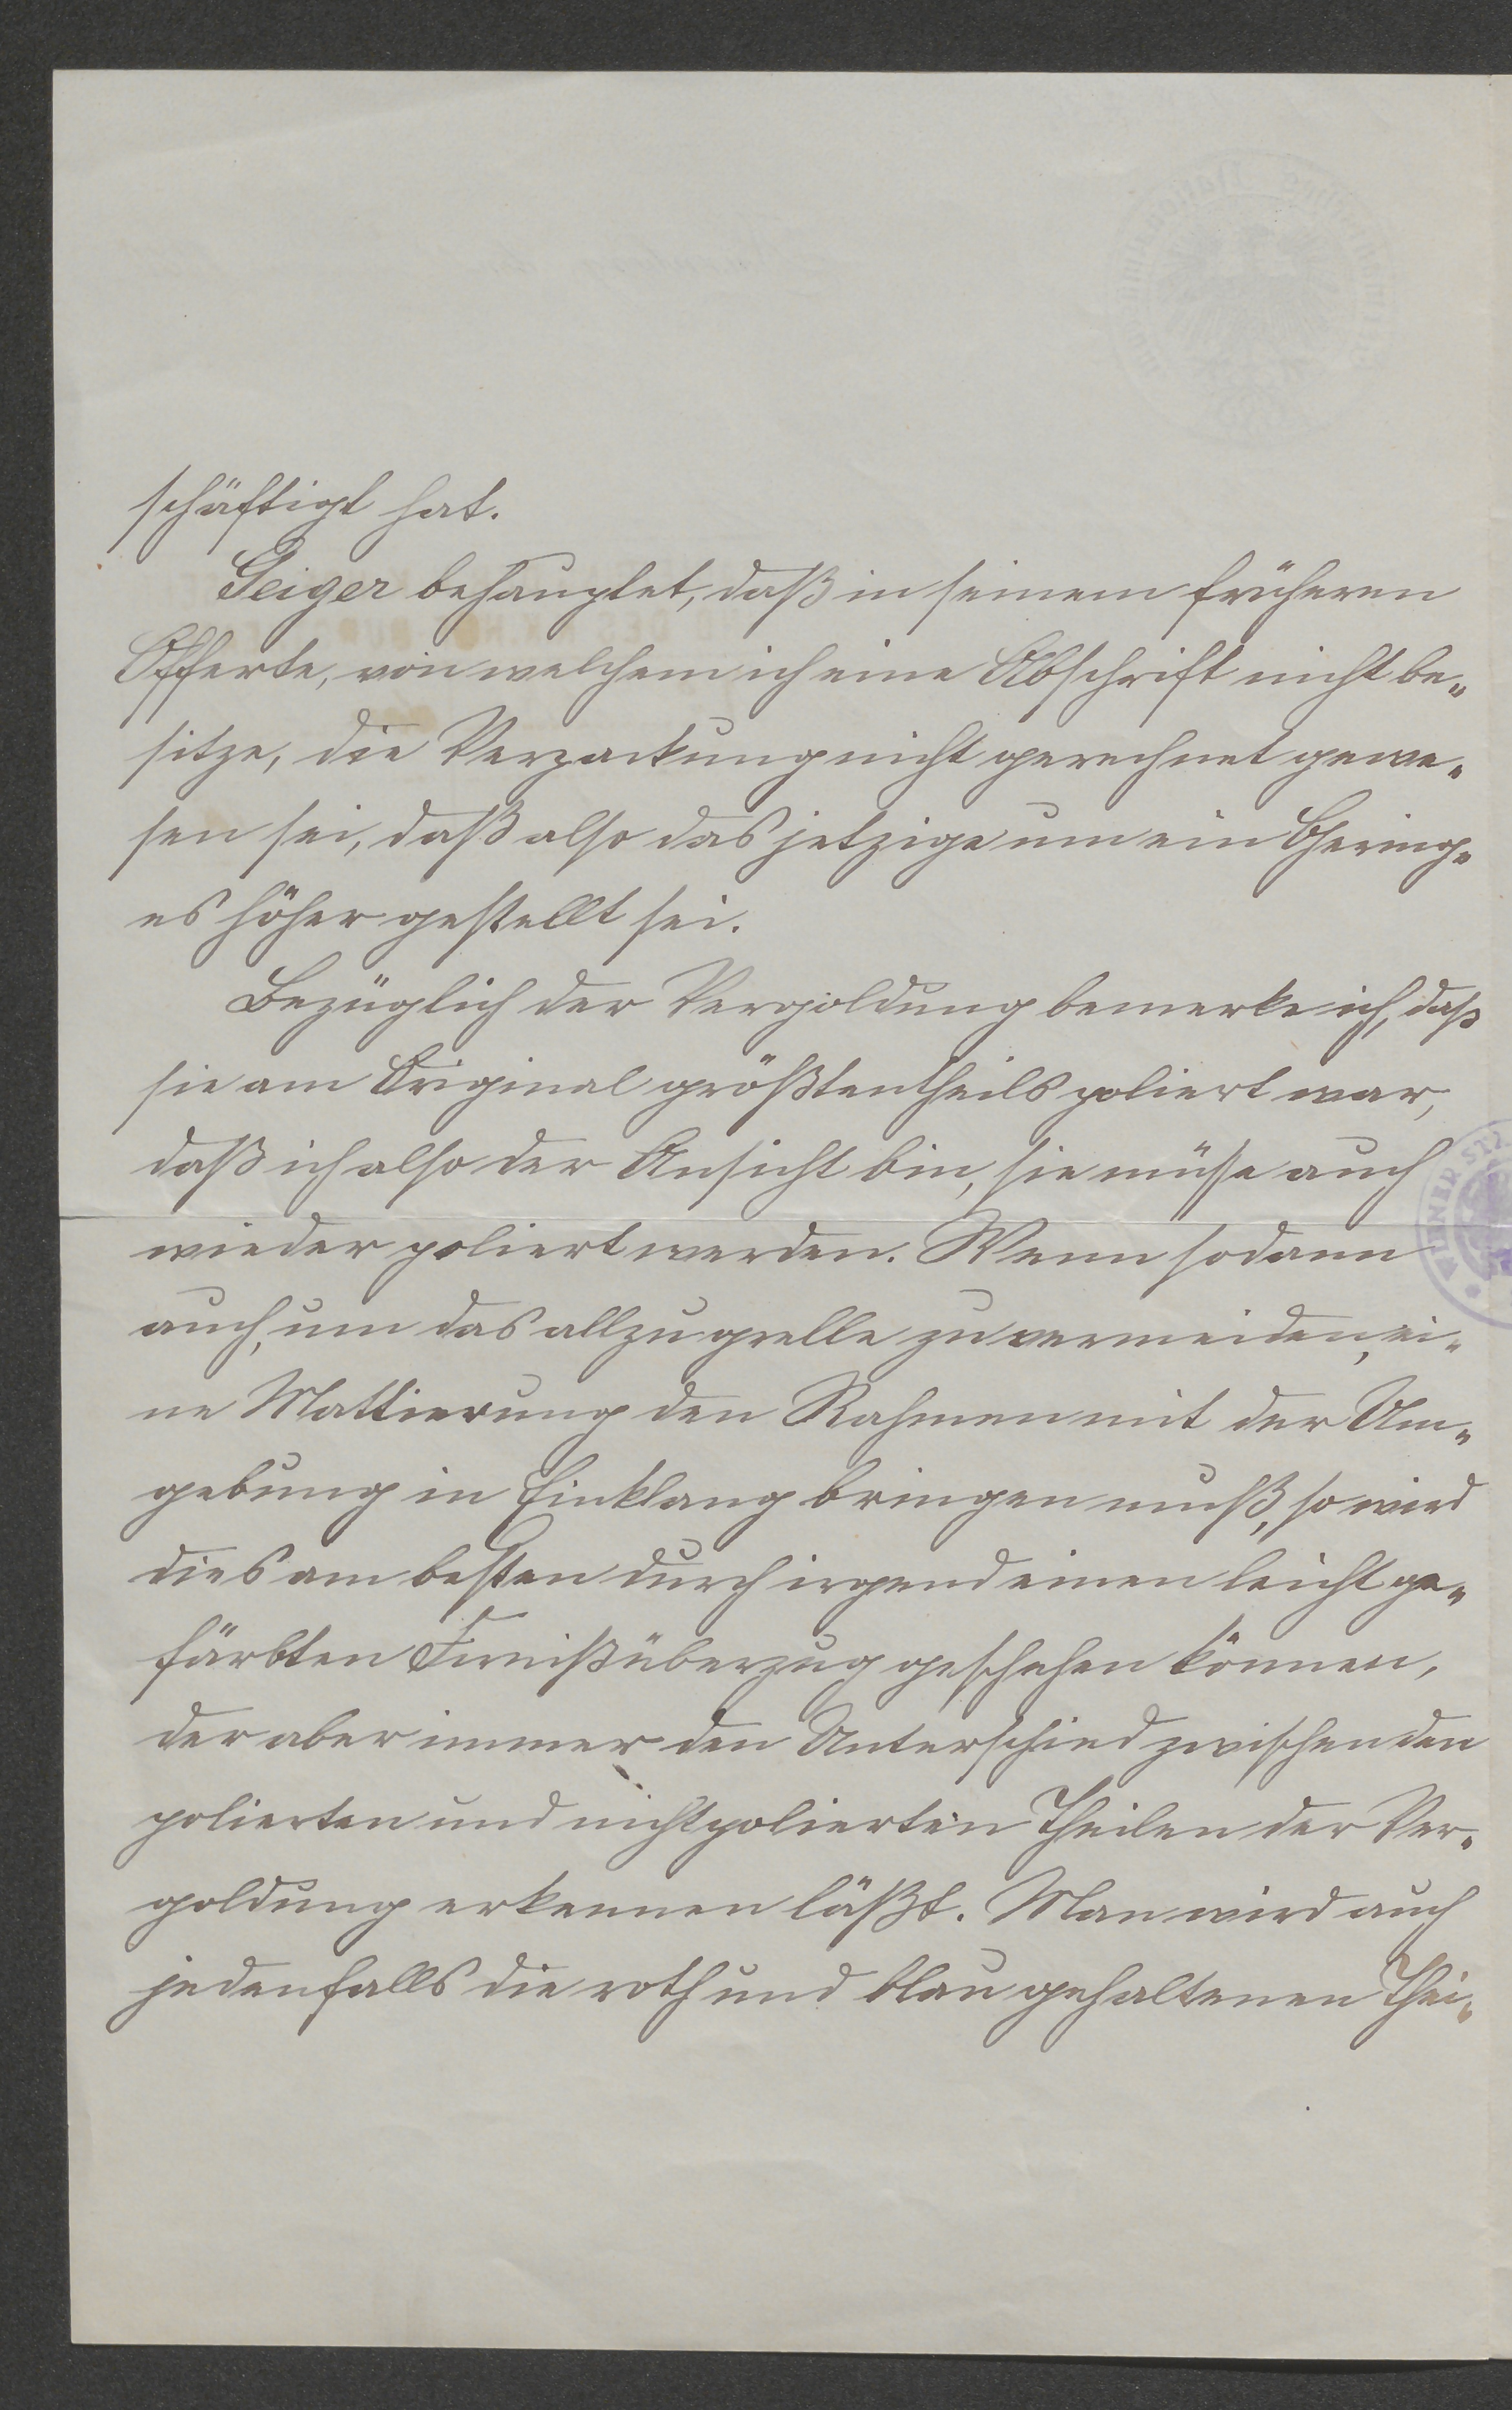 schäftigt hat.
Geiger behauptet, daß in seinem früheren
Offerte, von welchem ich eine Abschrift nicht be„
sitze, die Verpackung nicht gerechnet gewe„
sen sei, daß also das jetzige um ein Gering„
es höher gestellt sei.
Bezüglich der Vergoldung bemerke ich, daß
sie am Original größtentheils poliert war,
daß ich also der Ansicht bin, sie müße auch
wieder poliert werden. Wenn sodann
auch, um das allzu grelle zu vermeiden, ei„
ne Mattierung den Rahmen mit der Um„
gebung in Einklang bringen muß, so wird
dies am besten durch irgend einen leicht ge„
färbten Firnißüberzug geschehen können,
der aber immer den Unterschied zwischen den
polierten und nichtpolierten Theilen der Ver„
goldung erkennen läßt. Man wird auch
jedenfalls die roth und blau gehaltenen Thei„